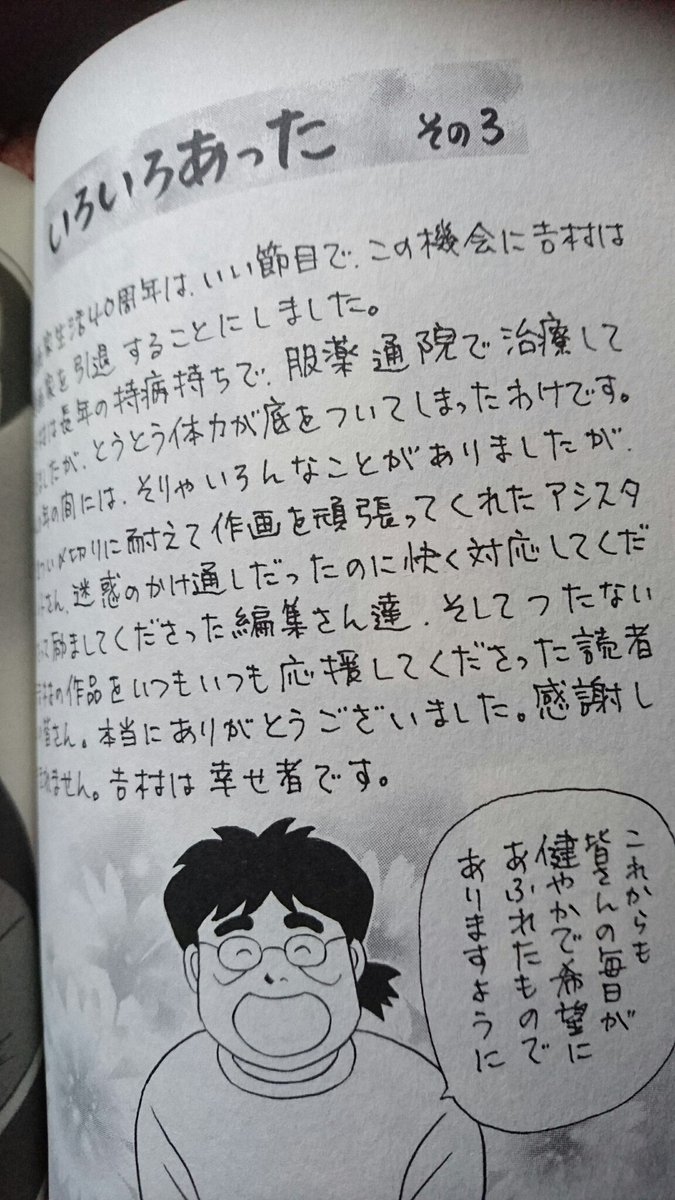 いろいろあった その3
家生活40周年は、いい節目で、この機会に吉村は
家を引退することにしました。
は長年の持病持ちで、服薬通院で治療して
したが、とうとう体力が底をついてしまったわけです。
年の間には、そりゃいろんなことがありましたが、
つい〆切りに耐えて作画を頑張ってくれたアシスタ
さん、迷惑のかけ通しだったのに快く対応してくだ
て励ましてくださった編集さん達、そしてつたない
村の作品をいつもいつも応援してくださった読者
皆さん。本当にありがとうございました。感謝し
れません。吉村は幸せ者です。
これからも
皆さんの毎日が
健やかで希望に
あふれたもので
ありますように